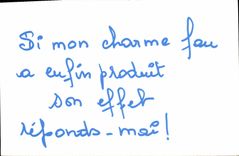 Si mon charme fou
a enfin produit
son effet
réponds-moi!